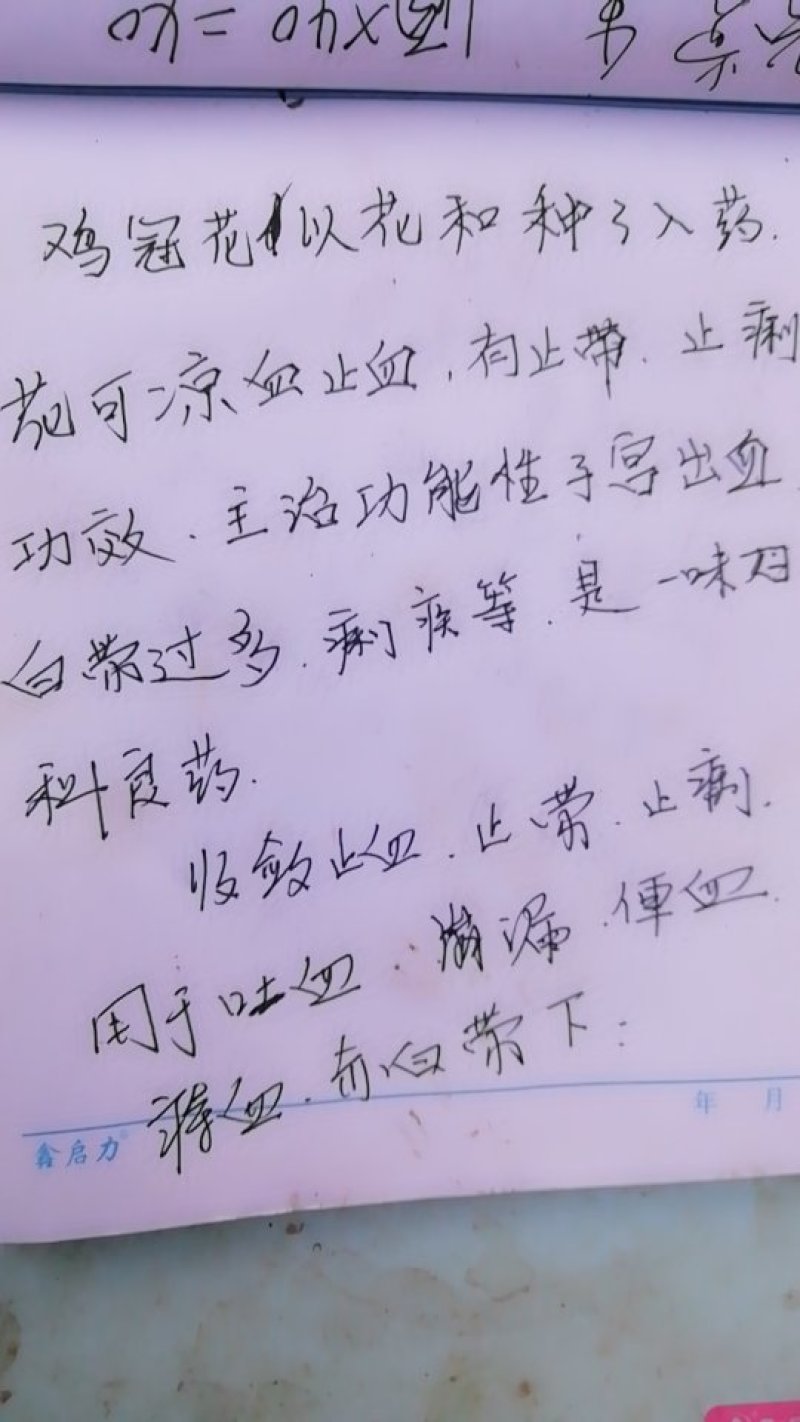 鸡冠花以花和种子入药.
花可凉血止血,有止带、止痢
功效、主治功能性子宫出血、
白带过多、痢疾等、是一味妇
科良药.
收敛止血、止带、止痢.
用于吐血、崩漏、便血.
痔血、赤白带下:
年 月
鑫启力